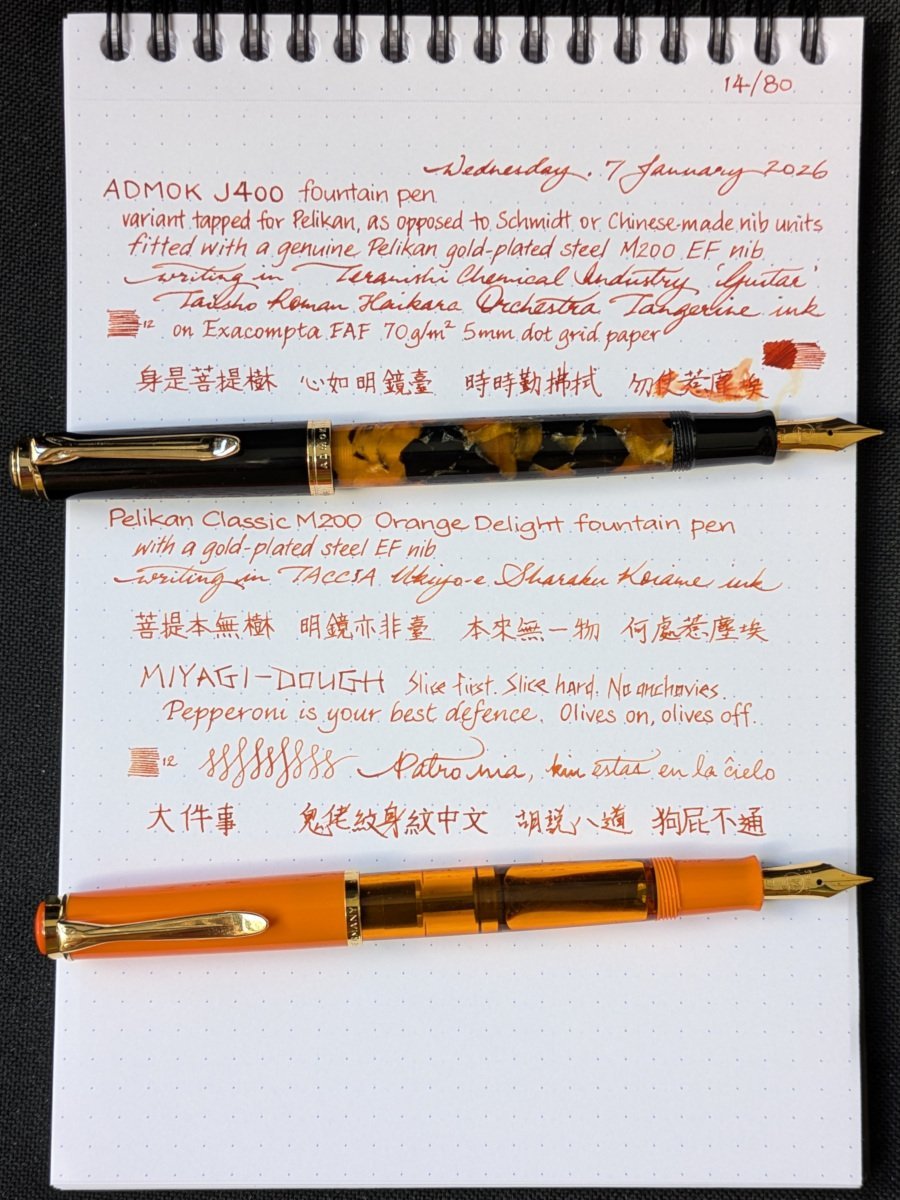 14/80
Wednesday, 7 January 2026
ADMOK J400 fountain pen
variant tapped for Pelikan, as opposed to Schmidt or Chinese-made nib units
fitted with a genuine Pelikan gold-plated steel M200 EF nib
writing in Teranishi Chemical Industry 'Guitar'
Taisho Roman Haikara Orchestra Tangerine ink
12 on Exacompta FAF 70g/m² 5mm dot grid paper
身是菩提樹 心如明鏡臺 時時勤拂拭 勿使惹塵埃
Pelikan Classic M200 Orange Delight fountain pen
with a gold-plated steel EF nib
writing in TACCIA Ukiyo-e Sharaku Koiame ink
菩提本無樹 明鏡亦非臺 本來無一物 何處惹塵埃
MIYAGI-DOUGH Slice first. Slice hard. No anchovies.
Pepperoni is your best defence. Olives on, olives off.
12 Patro nia, kiu estas en la ĉielo
大件事 鬼佬紋身紋中文 胡説八道 狗屁不通